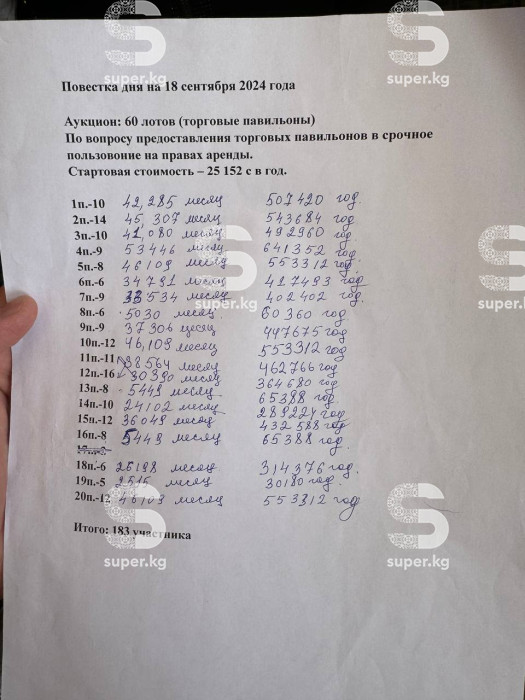 super.kg
super.kg
Повестка дня на 18 сентября 2024 года
Аукцион: 60 лотов (торговые павильоны)
По вопросу предоставления торговых павильонов в срочное
пользовоние на правах аренды.
Стартовая стоимость – 25 152 с в год.
1п.-10 42,285 месяц 507420 год.
2п.-14 45,307 месяц 543684 год
3п.-10 41,080 месяц 492960 год
4п.-9 53446 месяц 641352 год
5п.-8 46109 месяц 553312 год.
6п.-6 34791 месяц 417493 год
7п.-9 33534 месяц 402402 год.
8п.-6 5030 месяц 60360 год
9п.-9 37306 месяц 447675 год
10п.-12 46,109 месяц 553312 год
11п.-11 38564 месяц 462766 год
12п.-16 30390 месяц 364680 год
13п.-8 5449 месяц 65388 год
14п.-10 24102 месяц 289224 год
15п.-12 36049 месяц 432588 год
16п.-8 5449 месяц 65388 год.
18п.-6 26198 месяц 314376 год.
19п.-5 2515 месяц 30180 год.
20п.-12 46109 месяц 553312 год
Итого: 183 участника
super.kg
super.kg
super.kg
super.kg